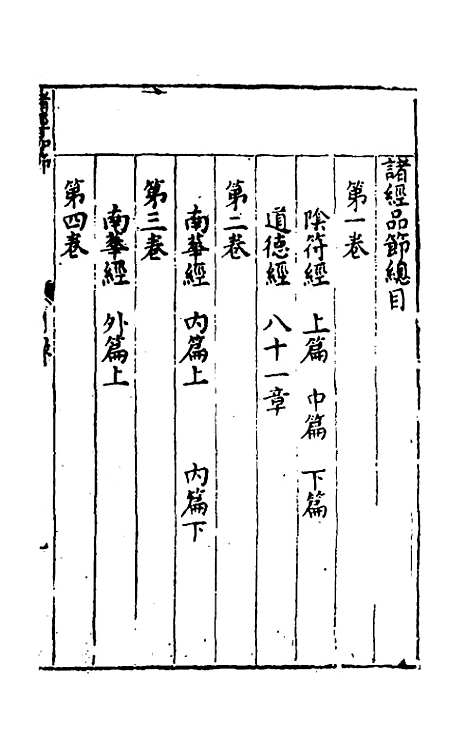 諸經品節總目
第一卷
陰符經　上篇　中篇　下篇
道德經　八十一章
第二卷
南華經　內篇上　內篇下
第三卷
南華經　外篇上
第四卷